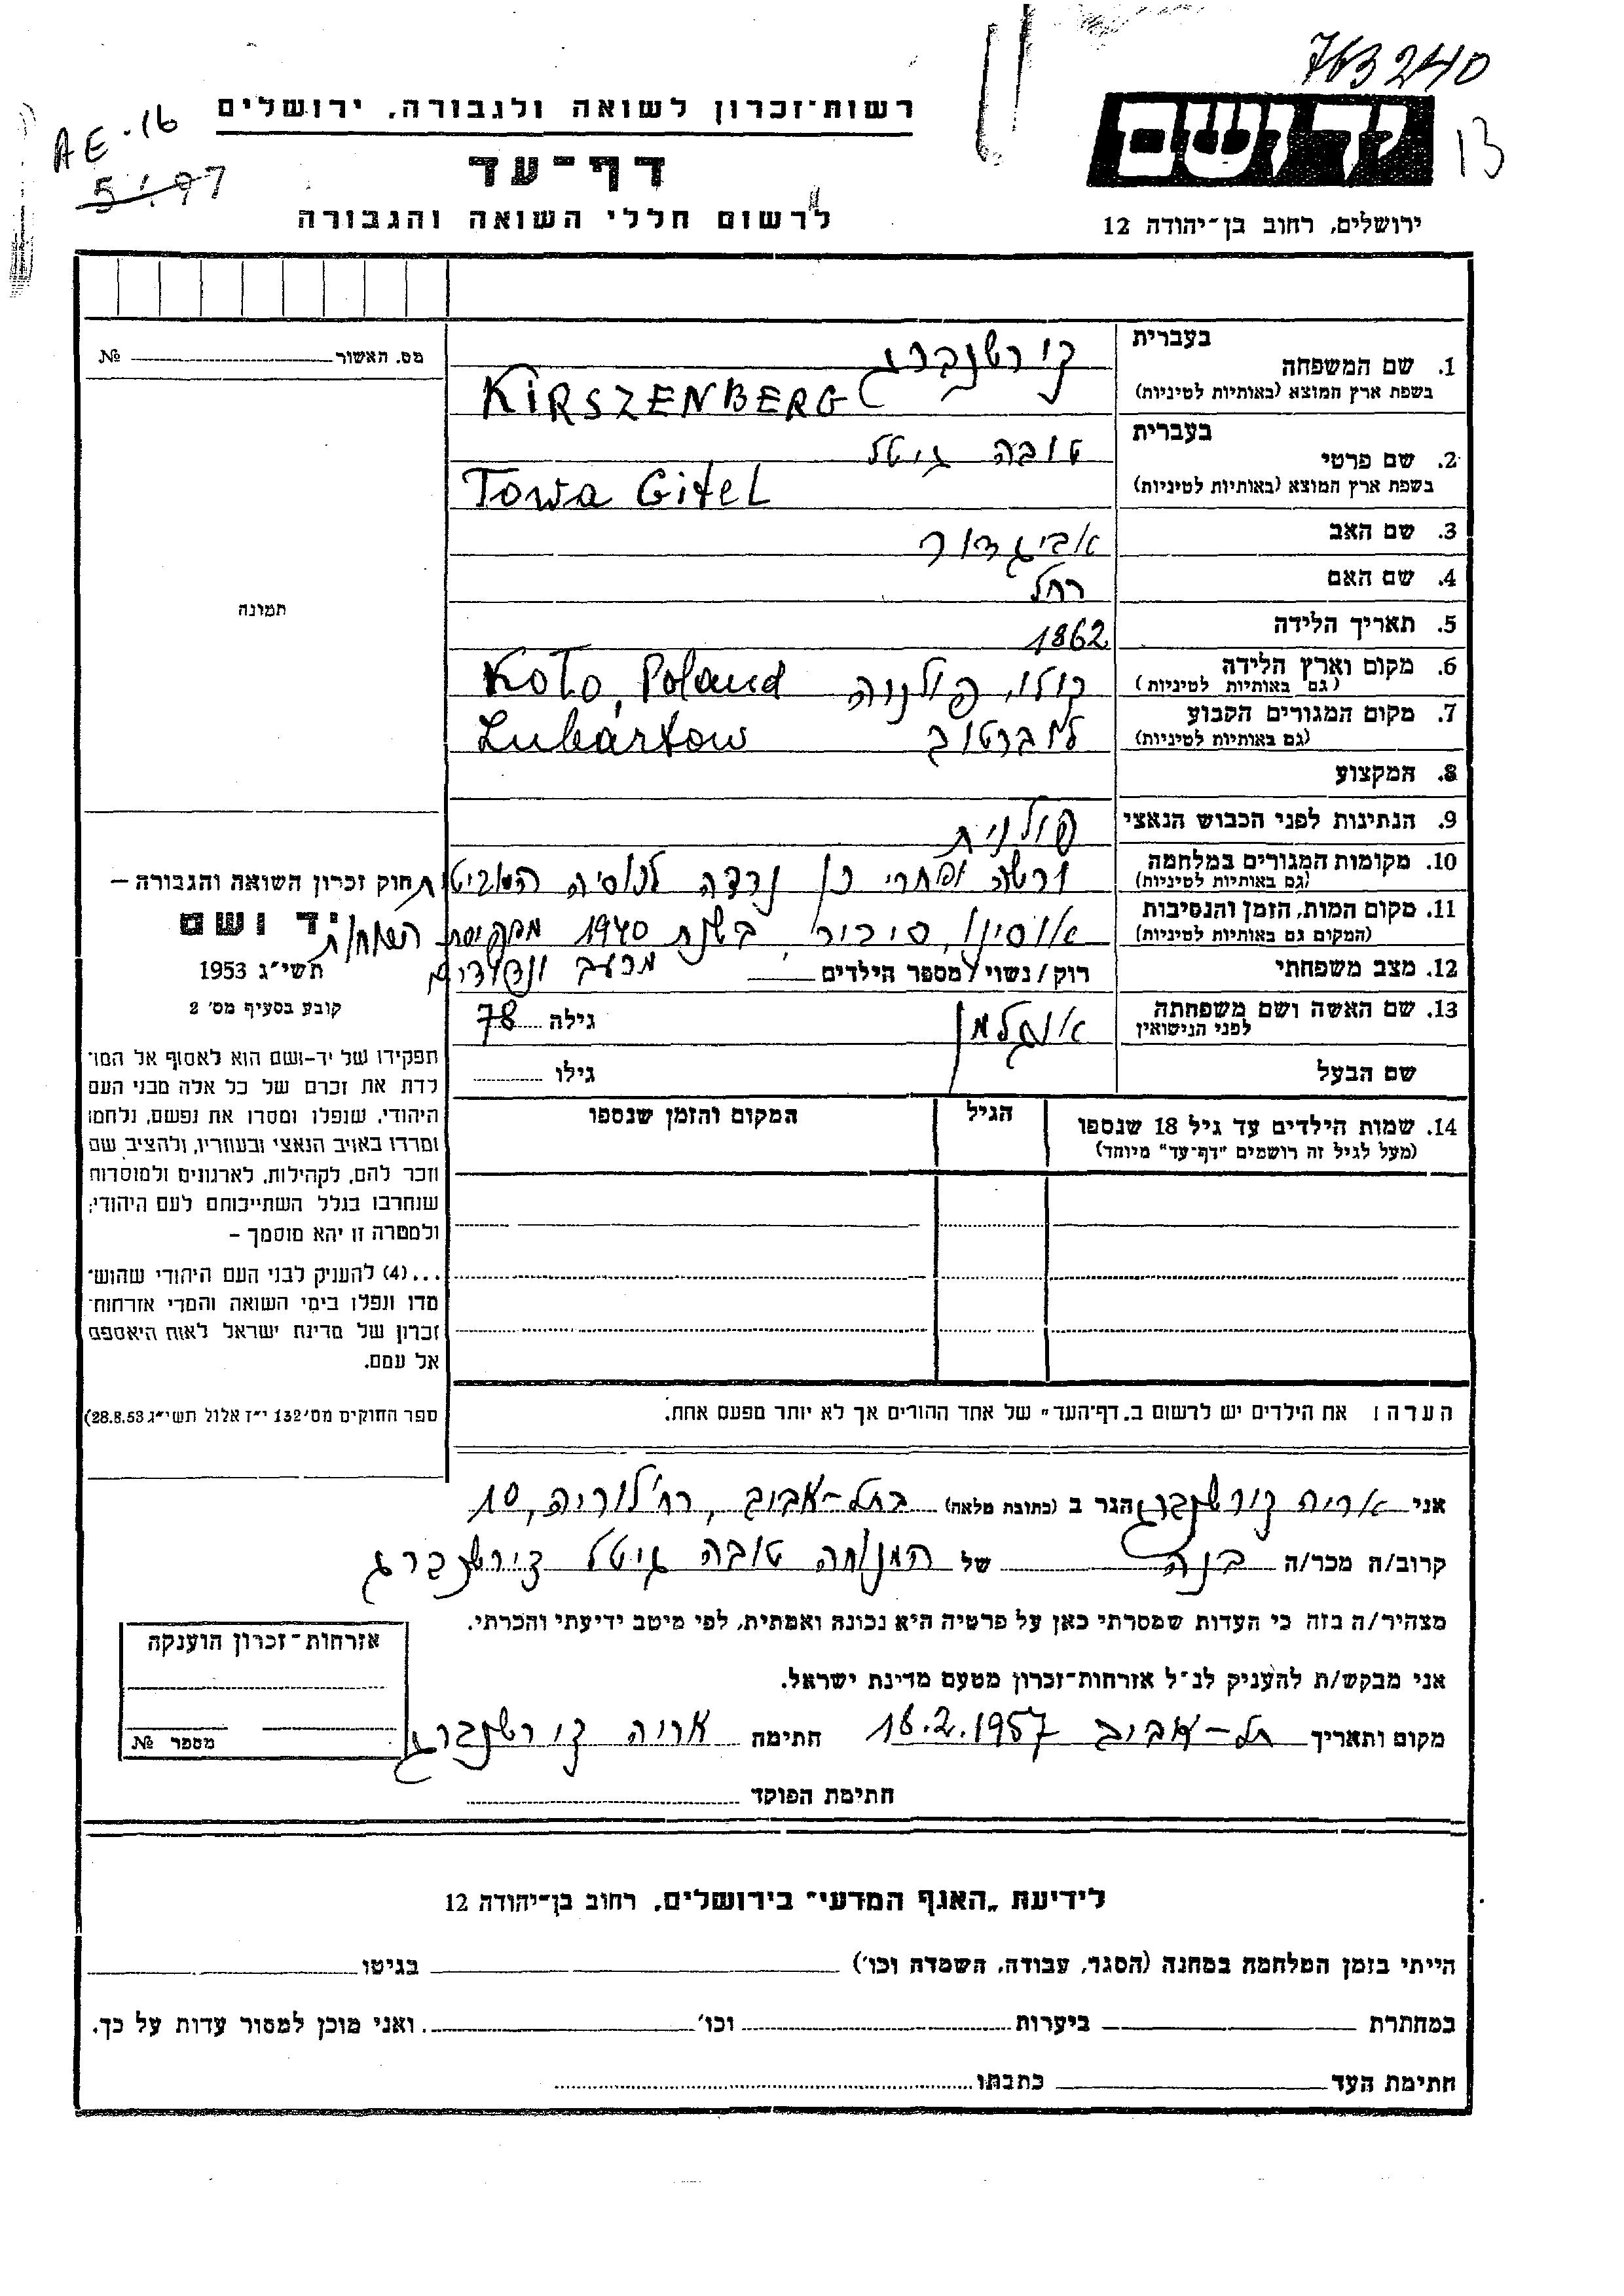 763240
רשות־זכרון לשואה ולגבורה, ירושלים
AE-16
יד ושם
13
דף־עד
5.1.97
לרשום חללי השואה והגבורה
ירושלים, רחוב בן־יהודה 12
בעברית
קירשנברג
1. שם המשפחה
בשפת ארץ המוצא (באותיות לטיניות)
KiRSZENBERG
מס. האשור № 
בעברית
טובה גיטל
2. שם פרטי
בשפת ארץ המוצא (באותיות לטיניות)
Towa Gitel
3. שם האב אביגדור
4. שם האם רחל
תמונה
5. תאריך הלידה 1862
6. מקום וארץ הלידה
(גם באותיות לטיניות)
קולו, פולניה Koło, Poland
7. מקום המגורים הקבוע
(גם באותיות לטיניות)
לוברטוב Lubartow
8. המקצוע
9. הנתינות לפני הכבוש הנאצי פולנית
10. מקומות המגורים במלחמה
(גם באותיות לטיניות)
ורשה ואחרי כן נדדה לרוסיה הסוביטית
11. מקום המות, הזמן והנסיבות
(המקום גם באותיות לטיניות)
סיביר, בשנת 1940
מרעב ונדודים
12. מצב משפחתי רוק/נשוי/מספר הילדים
13. שם האשה ושם משפחתה
לפני הנישואין
גילה 78
שם הבעל גילו
14. שמות הילדים עד גיל 18 שנספו
(מעל לגיל זה רושמים "דף־עד" מיוחד)
הגיל
המקום והזמן שנספו
הערה: את הילדים יש לרשום ב„דף־העד" של אחד ההורים אך לא יותר מפעם אחת.
חוק זכרון השואה והגבורה —
יד ושם
תשי"ג 1953
קובע בסעיף מס' 2
תפקידו של יד-ושם הוא לאסוף אל המו־
לדת את זכרם של כל אלה מבני העם
היהודי, שנפלו ומסרו את נפשם, נלחמו
ומרדו באויב הנאצי ובעוזריו, ולהציב שם
וזכר להם, לקהילות, לארגונים ולמוסדות
שנחרבו בגלל השתייכותם לעם היהודי;
ולמטרה זו יהא מוסמך —
...(4) להעניק לבני העם היהודי שהוש־
מדו ונפלו בימי השואה והמרי אזרחות־
זכרון של מדינת ישראל לאות היאספם
אל עמם.
ספר החוקים מס' 132 י"ז אלול תשי"ג 28.8.53)
אני אריה קירשנברג הגר ב (כתובת מלאה) בתל-אביב, רח' לוריה, 10
קרוב/ה מכר/ה בנה של המנוחה טובה גיטל קירשנברג
מצהיר/ה בזה כי העדות שמסרתי כאן על פרטיה היא נכונה ואמתית, לפי מיטב ידיעתי והכרתי.
אני מבקש/ת להעניק לנ"ל אזרחות־זכרון מטעם מדינת ישראל.
מקום ותאריך תל-אביב 18.2.1957 חתימה אריה קירשנברג
חתימת הפוקד
אזרחות־זכרון הוענקה
מספר №
לידיעת „האגף המדעי" בירושלים, רחוב בן־יהודה 12
הייתי בזמן המלחמה במחנה (הסגר, עבודה, השמדה וכו') בגיטו
במחתרת ביערות וכו' ואני מוכן למסור עדות על כך.
חתימת העד כתבתו